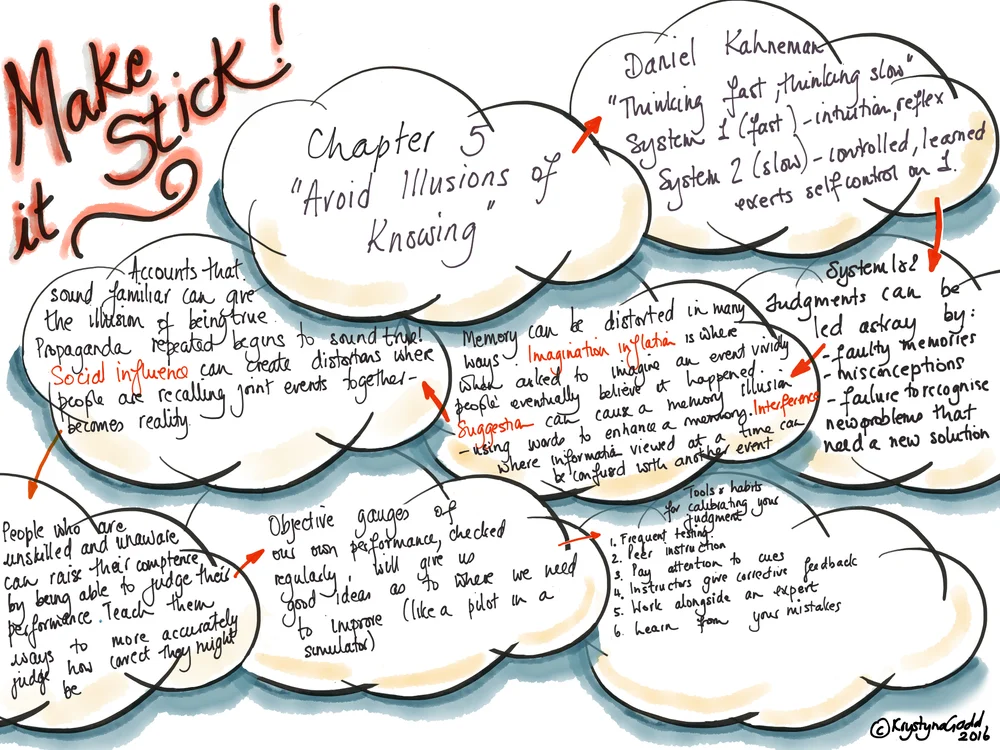 Make
it Stick!
Chapter 5
"Avoid Illusions of
Knowing"
Daniel Kahneman
"Thinking fast, thinking slow"
System 1 (fast) - intuition, reflex
System 2 (slow) - controlled, learned
exerts self control on 1.
System 1&2
Judgments can be
led astray by:
- faulty memories
- misconceptions
- failure to recognise
new problems that
need a new solution
Memory can be distorted in many
ways Imagination inflation is where
when asked to imagine an event vividly
people eventually believe it happened.
Suggestion can cause a memory illusion
- using words to enhance a memory. Interference
where information viewed at a time can
be confused with another event
Accounts that
sound familiar can give
the illusion of being true.
Propaganda repeated begins to sound true!
Social influence can create distortions where
people are recalling joint events together -
becomes reality.
People who are
unskilled and unaware
can raise their comptence
by being able to judge their
performance. Teach them
ways to more accurately
judge how correct they might
be
Objective gauges of
our own performance, checked
regularly, will give us
good ideas as to where we need
to improve (like a pilot in a
simulator)
Tools & habits
for calibrating your
judgment
1. Frequent testing.
2. Peer instruction
3. Pay attention to cues
4. Instructors give corrective feedback
5. Work alongside an expert
6. Learn from your mistakes
© KrystynaGadd
2016